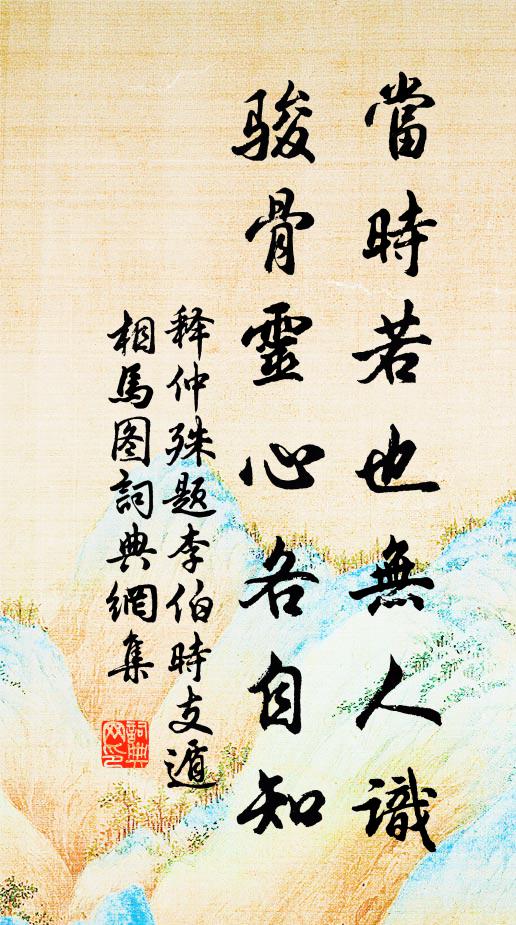 當時若也無人識
骏骨靈心各自知
释仲殊题李伯時支遁
相馬图詞典網集
詞典